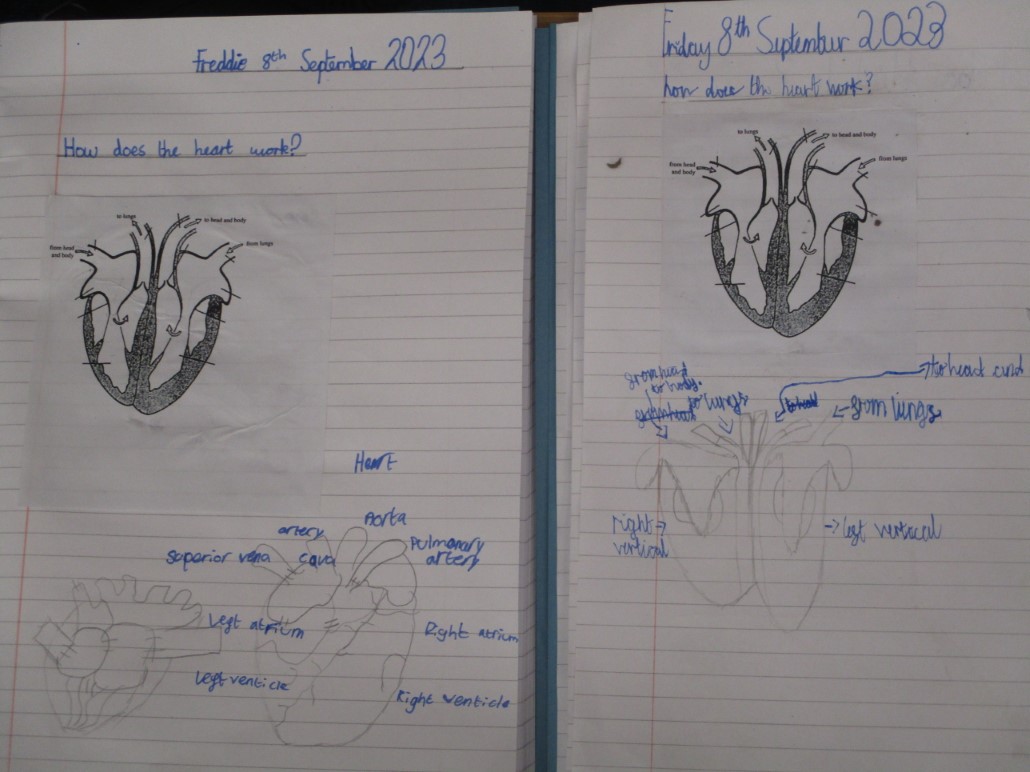 Freddie 8th September 2023
How does the heart work?
to lungs
to head and body
from head
and body
from lungs
Heart
Aorta
artery
superior vena cava
Pulmonary
artery
Left atrium
Right atrium
Left venticle
Right venticle
Friday 8th September 2023
how does the heart work?
to lungs
to head and body
from head
and body
from lungs
to head and
to lungs
from lungs
right
vertical
left vertical